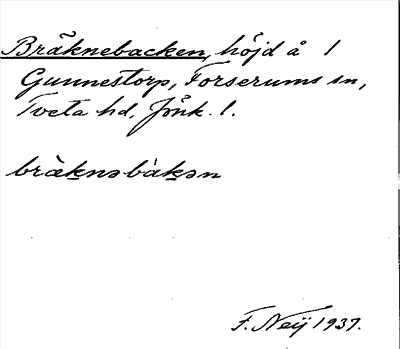 Bräknebacken, höjd å 1
Gunnestorp, Forserums sn,
Tveta hd, Jönk. l.
bràknə bàkən
F. Neij 1937.